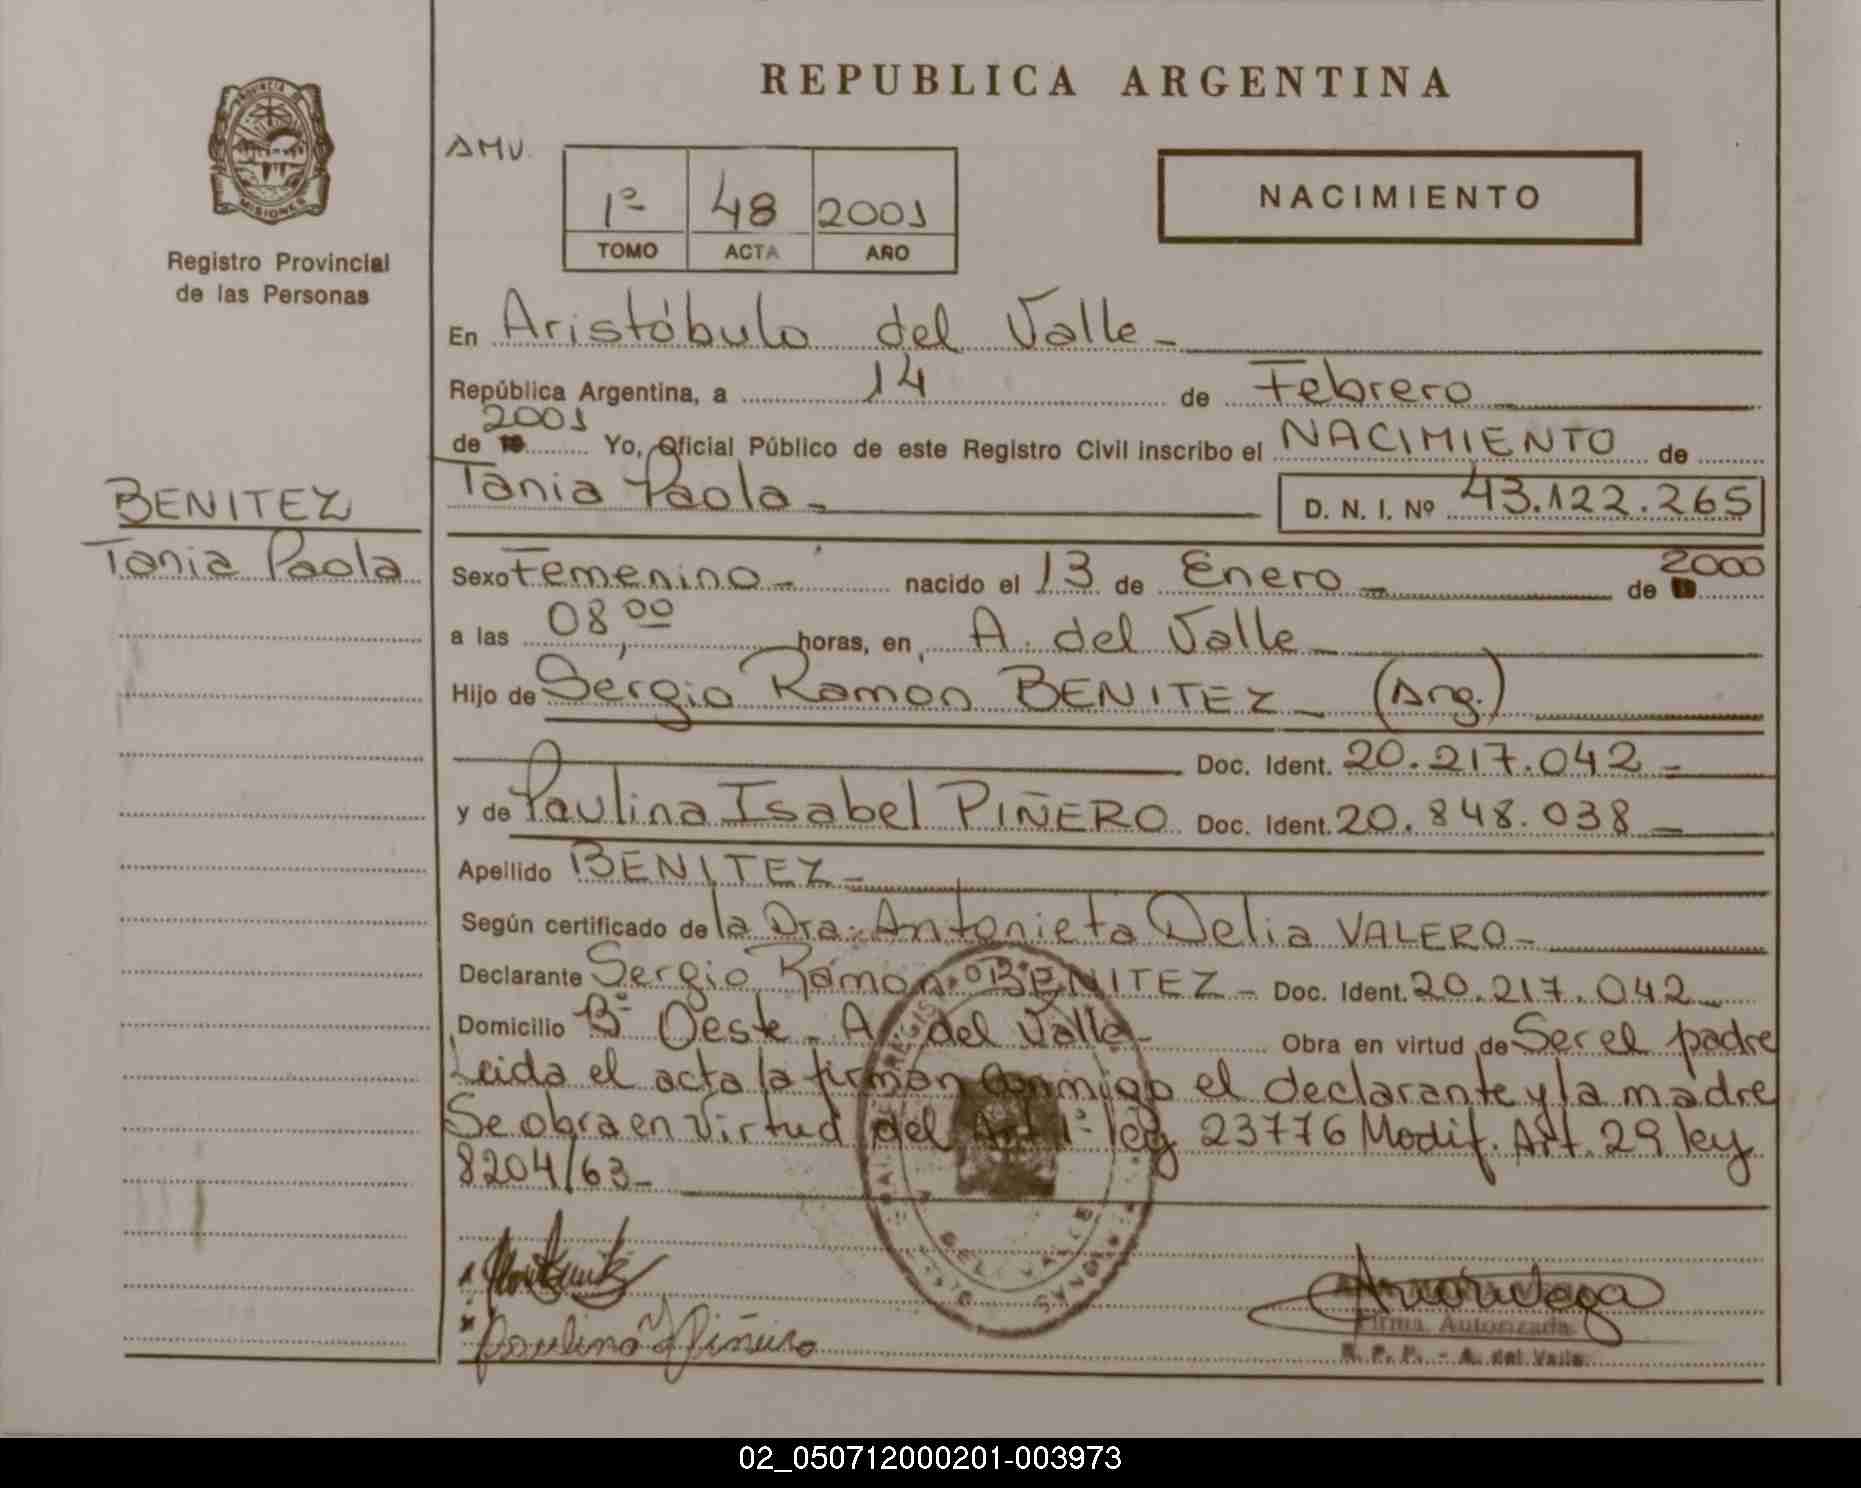 REPUBLICA ARGENTINA
PROVINCIA
MISIONES
Registro Provincial
de las Personas
AMV.
1º 48 2001
TOMO ACTA AÑO
NACIMIENTO
En Aristóbulo del Valle -
República Argentina, a 14 de Febrero
2001
de 19 Yo, Oficial Público de este Registro Civil inscribo el NACIMIENTO de
BENITEZ
Tania Paola
Tania Paola - D. N. I. Nº 43.122.265
Sexo Femenino - nacido el 13 de Enero - de 2000
a las 08,00 horas, en A. del Valle -
Hijo de Sergio Ramon BENITEZ - (Arg.)
Doc. Ident. 20.217.042 -
y de Paulina Isabel PIÑERO Doc. Ident. 20.848.038 -
Apellido BENITEZ -
Según certificado de la Dra. Antonieta Delia VALERO -
Declarante Sergio Ramón BENITEZ - Doc. Ident. 20.217.042 -
Domicilio Bº Oeste - A. del Valle - Obra en virtud de Ser el padre
Leida el acta la firman conmigo el declarante y la madre
Se obra en virtud del Art 1º ley 23776 Modif. Art. 29 ley
8204/63 -
Firma Autorizada
R. P. P. - A. del Valle
02_050712000201-003973